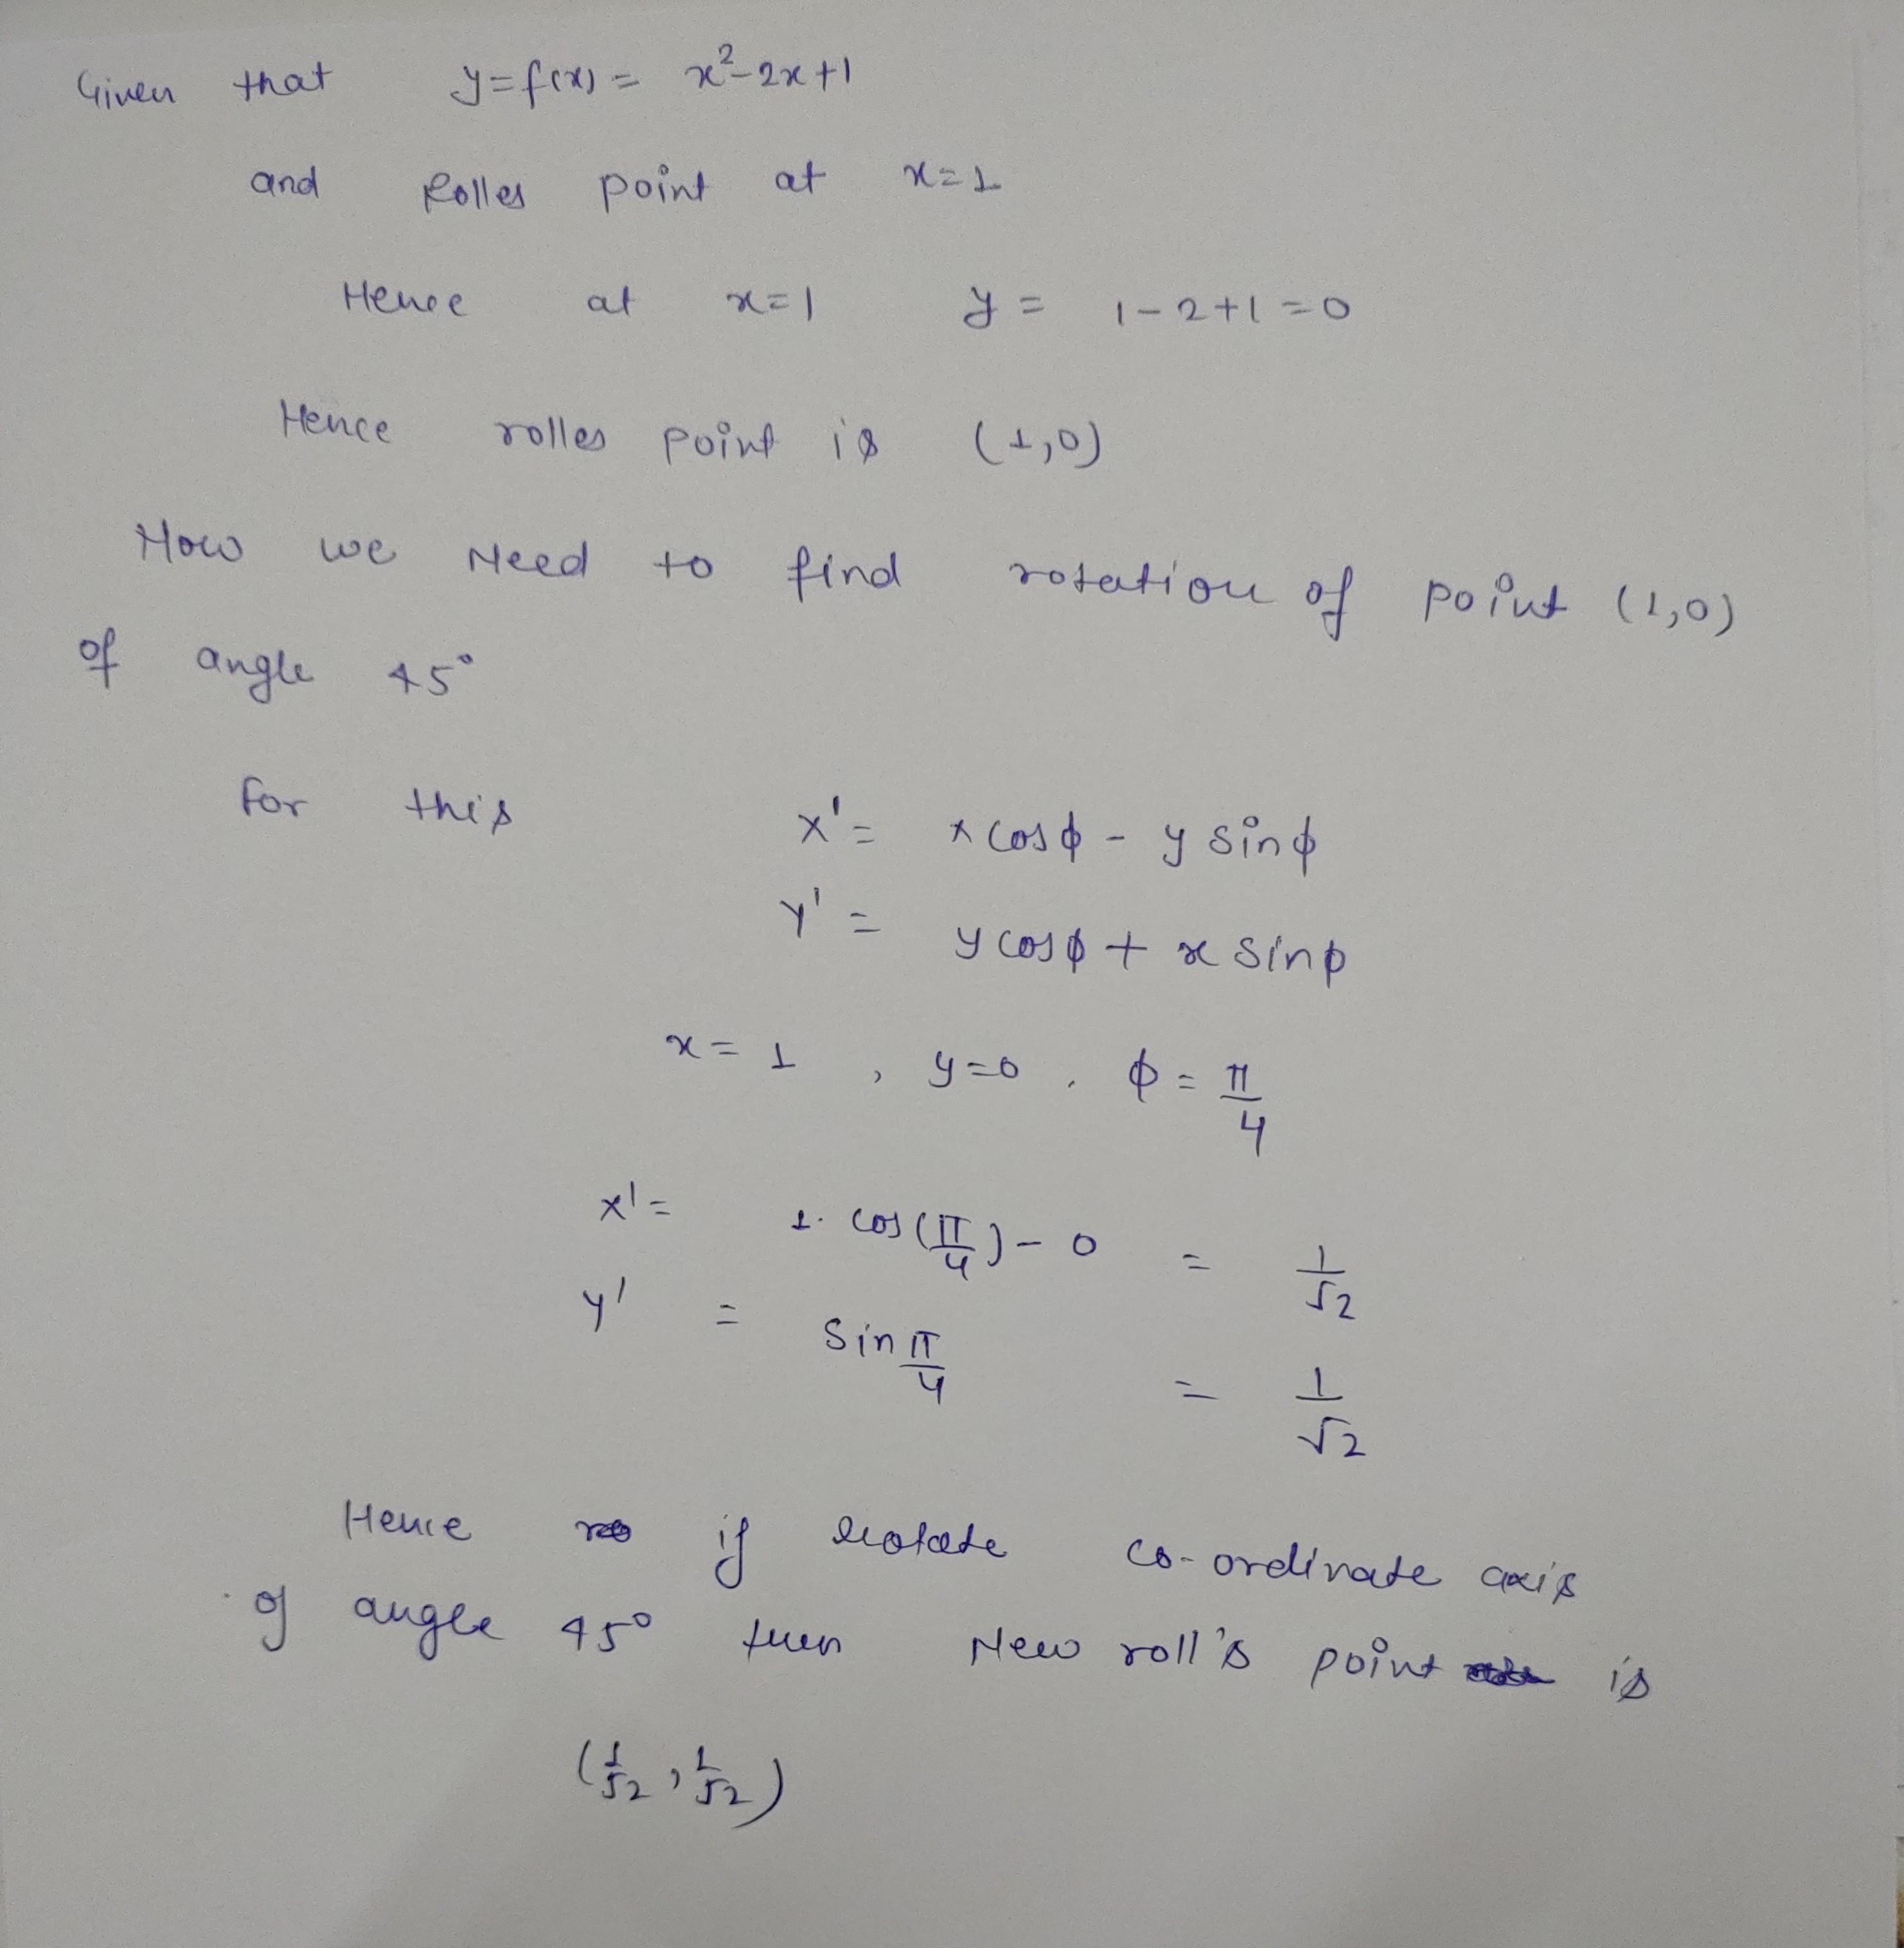 Given that y=f(x) = x²-2x+1
and Rolles point at x=1
Hence at x=1 y = 1-2+1=0
Hence rolles point is (1,0)
Now we Need to find rotation of point (1,0)
of angle 45°
for this x' = x cosϕ - y sinϕ
y' = y cosϕ + x sinϕ
x = 1 , y=0 , ϕ = π/4
x' = 1. cos(π/4) - 0 = 1/√2
y' = sin π/4 = 1/√2
Hence if rotate co-ordinate axis
of angle 45° then New roll's point is
(1/√2 , 1/√2)